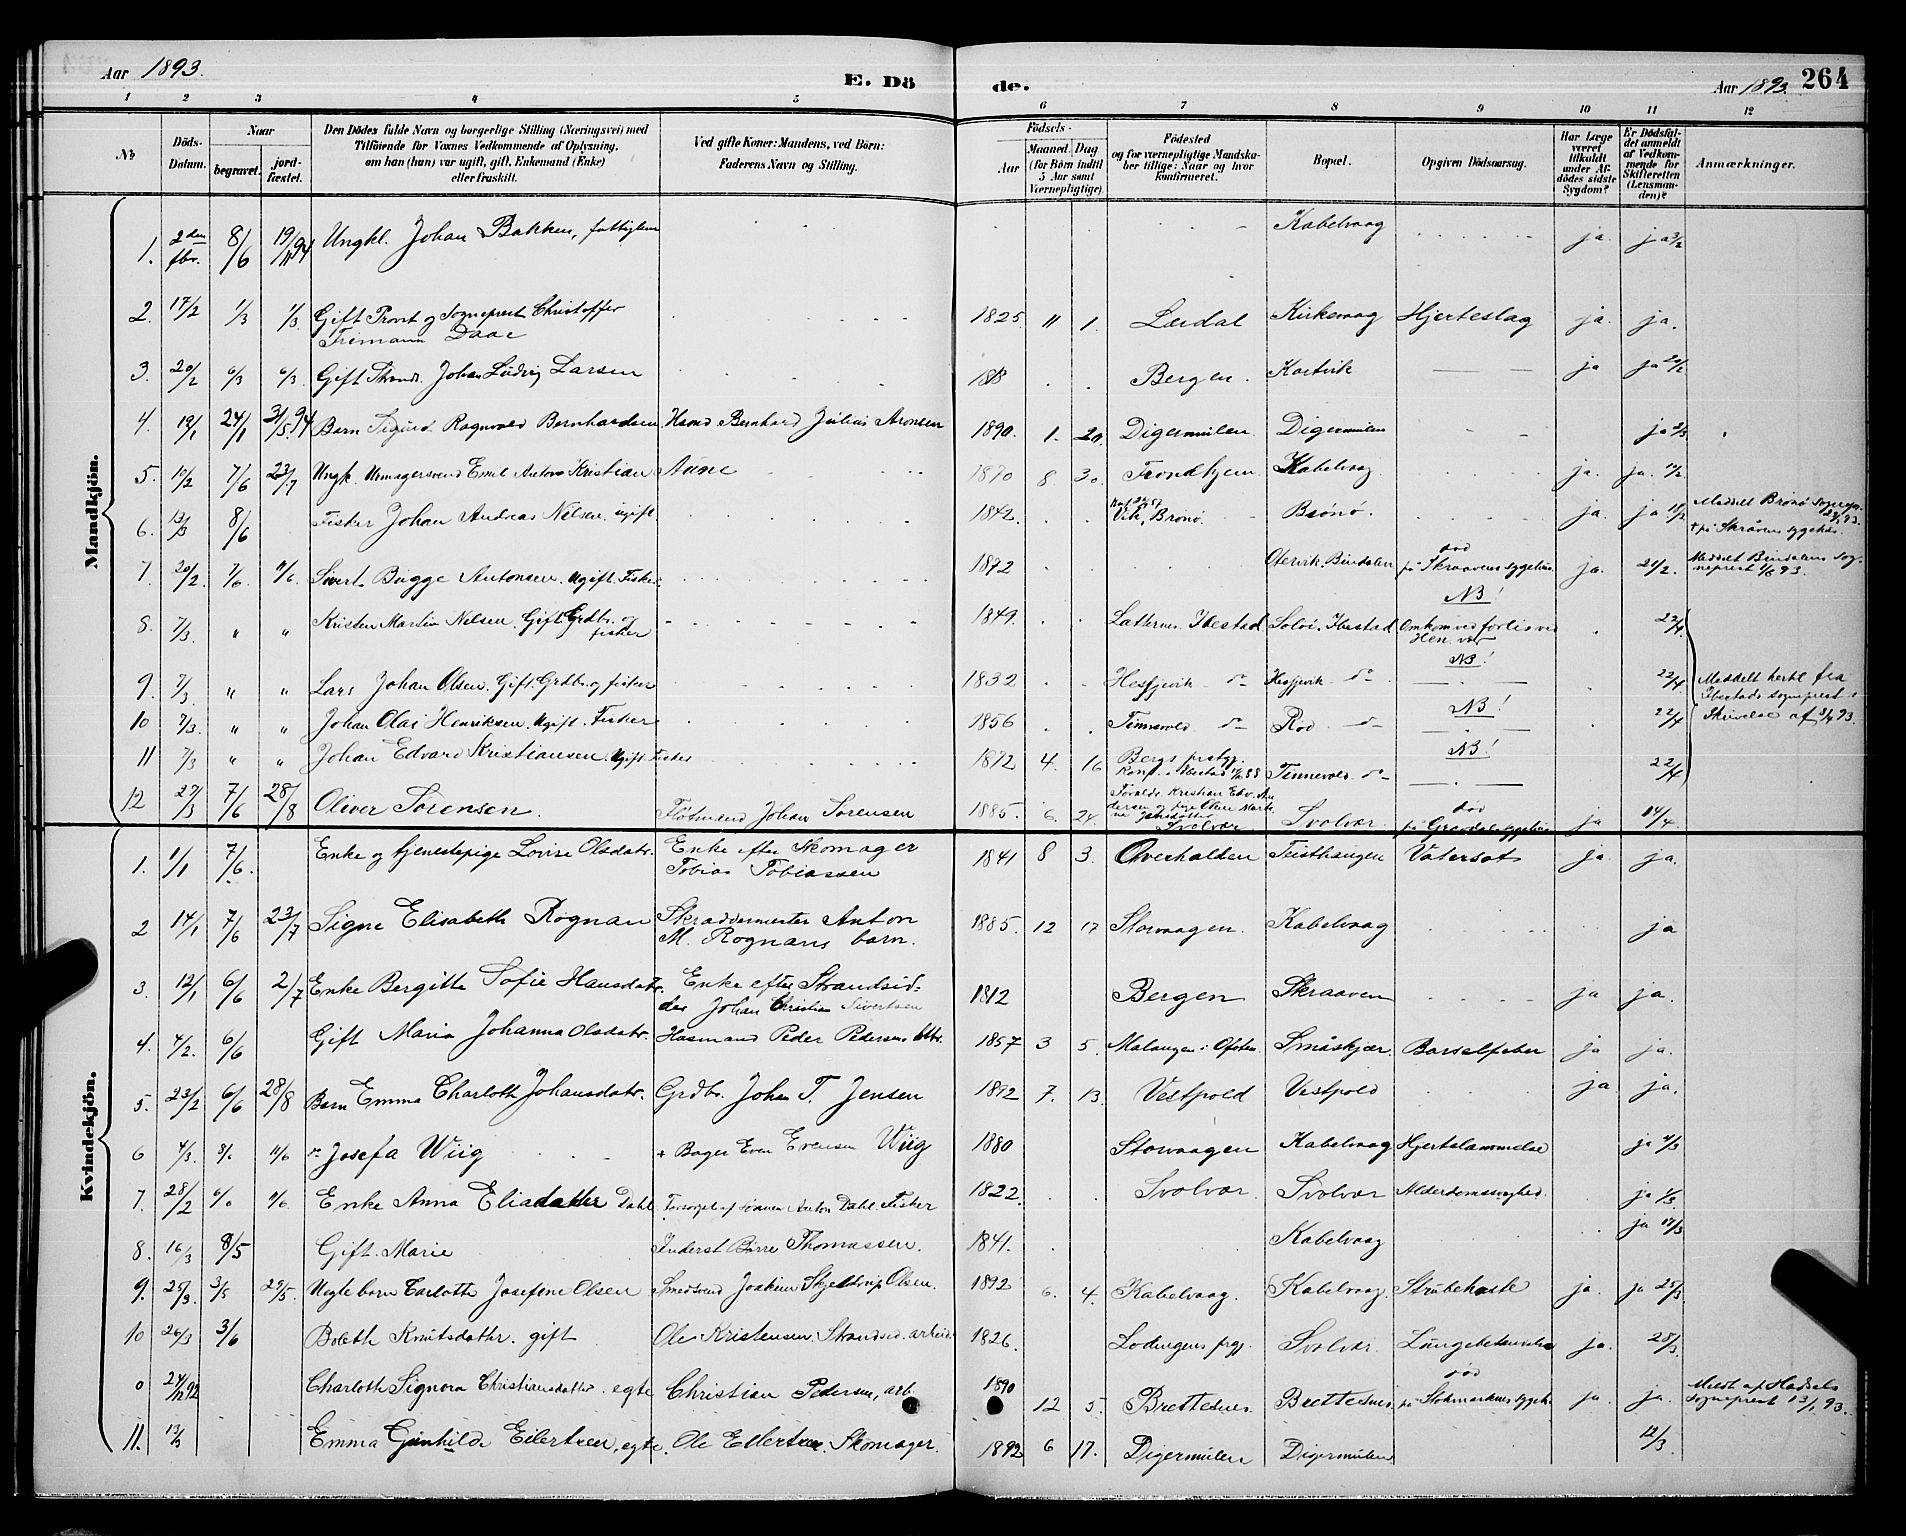 Aar 1893.
E. Dö
de.
Aar 1893.
264
1 2 3 4 5 6 7 8 9 10 11 12
№
Döds-Datum.
Naar
begravet.
jordfæstet.
Den Dödes fulde Navn og borgerlige Stilling (Næringsvei) med
Tilföiende for Voxnes Vedkommende af Oplysning,
om han (hun) var ugift, gift, Enkemand (Enke)
eller fraskilt.
Ved gifte Koner: Mandens, ved Börn:
Faderens Navn og Stilling.
Födsels-
Aar
Maaned. Dag
(for Börn indtil
5 Aar samt
Værnepligtige).
Födested
og for værnepligtige Mandskaber tillige: Naar og hvor
konfirmeret.
Bopæl.
Opgiven Dödsaarsag.
Har Læge
været
tilkaldt
under Afdödes sidste
Sygdom?
Er Dödsfaldet anmeldt
af Vedkommende for
Skifteretten
(Lensmanden)?
Anmærkninger.
Mandkjön.
1. 2den fbr. 8/6 19/11 94 Ungkl. Johan Bakken, fattiglem Kabelvaag ja. ja 3/2
2. 17/2 1/3 1/3 Gift Provst og Sogneprest Christoffer
Daae 1825 11 1. Lærdal Kirkevaag Hjerteslag ja. ja.
3. 20/2 6/3 6/3. Gift Strands. Johan Ludvig Larsen Bergen. ja ja 20/2
4. 19/1 24/1 31/5 94 Barn Sigurd Ragnvald Bernhardsen Hsmd Bernhard Julius Aronsen 1890. 1. 20. Digermulen. Digermulen ja 2/3
5. 10/2 7/6 23/7 Ungk. Urmagersvend Emil Anton Kristian Aune 1870 8 30. Trondhjem Kabelvaag. ja. ja.
6. 8/6 Fisker Johan Andreas Nilsen. ugift 1842. Vik, Brønø. Brønø. ja. ja Meddelt Brønø sognepr.
+ på Skråvens sygehus.
7. 20/2. 7/6. 9/6. Sivert Bugge Antonsen. Ugift. Fisker 1872 Bindalen død
på Skraavens sygehus. ja. 21/2. Meddelt Bindalens sogneprest 1/6 93.
8. 7/3. " " Kristen Martin Nilsen. Gift. Grdbr. og
fisker 1849. Ibestad Ibestad NB!
Omkom ved forlis ved 22/4
9. 7/3 " " Lars Johan Olsen. Gift. Grdb. og fisker 1832 NB! 22/4 Meddelt hertil fra
Ibestads sogneprest i
10 7/3. " " Johan Olai Henriksen. Ugift. Fisker 1856 NB! 22/4 Skrivelse af 8/4 93.
11 7/3 " " Johan Edvard Kristiansen. Ugift. Fisker 1872 4. 16 Bergs prstgj.
Tennevold NB! 22/4
12 27/3 7/6 28/8 Oliver Sörensen. Flötmand Johan Sörensen 1885. 6. 24. Svolvær Svolvær. død
på Gravdals sygehus ja 14/4.
Kvindekjön.
1. 1/1 7/6. Enke og tjenestepige Lovise Olsdatr. Enke efter Skomager
Tobias Tobiassen 1841 8 3. Overhalden Teisthaugen Vatersot ja. ja.
2 14/1 7/6 23/7 Signe Elisabeth Rognan Skræddermester Anton
M. Rognans barn. 1885. 12 17 Storvaagen. Kabelvaag ja
3. 12/1 6/6 2/7 Enke Bergitte Sofie Hansdatr. Enke efter Strandsidder Johan Christian Sivertsen 1812 Bergen Skraaven ja ja.
4. 4/2. 6/6 Gift Maria Johanna Olsdatr. Husmand Peder Pedersens 1857 3 5. Malangen i Ofoten. Småskjær. Barselfeber ja ja.
5. 23/2 6/6 28/8 Barn Emma Charloth Johansdatr. Grdbr. Johan T. Jensen 1892 7. 13. Vestpold Vestpold ja ja.
6 4/3. 8/6 11/6 Josefa Wiig + Bager Even Evensen Wiig 1880 Storvaagen Kabelvaag Hjertelammelse ja 4/3
7. 28/2 6/6 9/6 Enke Anna Eliadatter Dahl Forsørget af sønnen Anton Dahl. Fisker 1822. Svolvær Svolvær Alderdomssvaghed. ja 1/3.
8. 16/3 8/5 Gift. Marie Inderst Børre Thomassen. 1841. Kabelvaag ja 17/3
9. 25/3. 3/5 29/5. Uegte barn Carlotte Josefine Olsen Smedsvend Joakim Skjelderup Olsen. 1892 6. 4. Kabelvaag. Kabelvaag. Strubehoste ja. ja 25/3
10 26/3 3/6 Boleth Knutsdattr. gift Ole Kristensen Strandsid. arbeid. 1826. Lodingens prgj. Svolvær. Lungebetændelse ja. 28/3.
0 24/12 92 Charlotte Signora Christiansdatter. egte Christian Pedersen, arb. 1890 12 5. Brettesnes Brettesnes død
på Stokmarknes sygeh. ja ja. Medt af Hadsels
sogneprest 13/1 93.
11. 13/3 Emma Gunhilde Eilertsen, egte. Ole Eilertsen. Skomager. 1892 6 17. Digermulen Digermulen 12/3